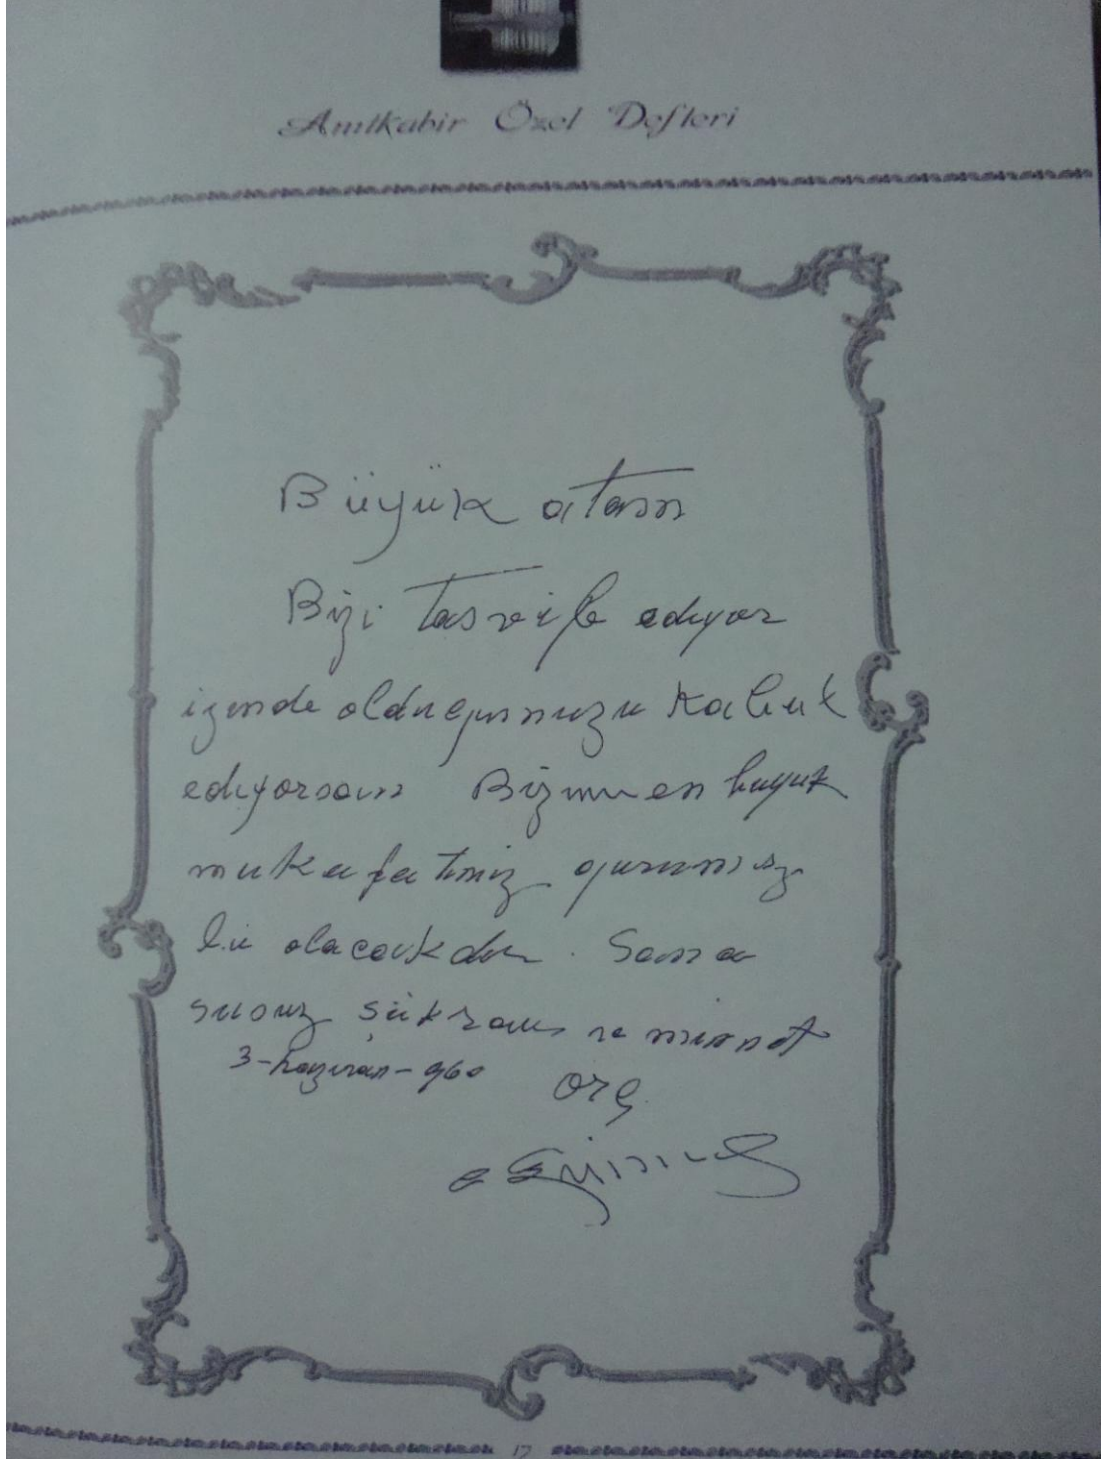 Anıtkabir Özel Defteri
Büyük atam
Bizi tasvib ediyor
izinde olduğumuzu kabul
ediyorsan Bizim en büyük
mukafatımız
olacakdır. Sana
sonsuz şükran ve minnet
3-haziran-960
org.
17